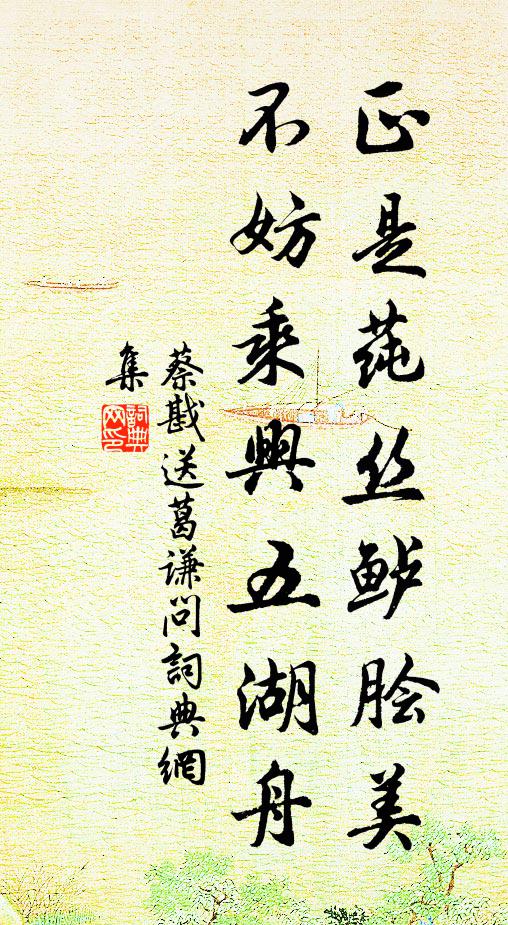 正是莼丝鲈脍美
不妨乘興五湖舟
蔡戡送葛谦问詞典網
集
詞典
网印